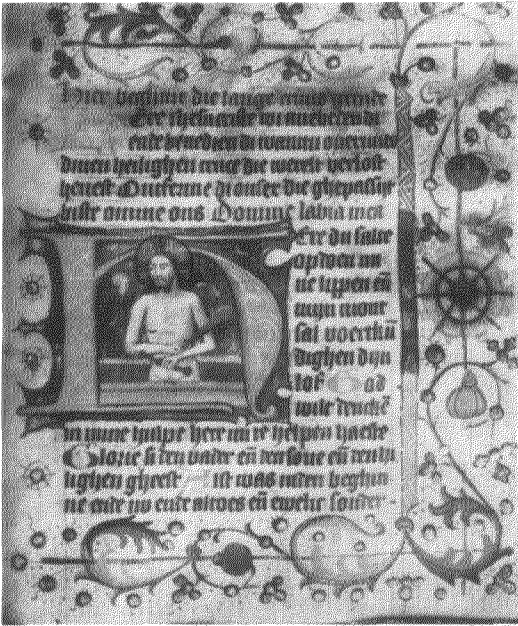 Hier beghint die langhe cruus ghetide
Ere ihesu criste wi anebeden di
ende benedien di wantu ouermids
dinen heilighen cruce die werelt verlost
heuest Ontferme di onser die ghepassijt
biste omme ons Domine labia mea
Ere du salte
opdoen mi
ne lippen eñ
mijn mont
sal voertkū
dighen dijn
lof God
wilt
in mine hulpe here mi te helpen haeste
Glorie si den vader eñ den sone eñ den hei
lighen gheest ist was inden beghin
ne ende nu ende altoes eñ ewelic sonder